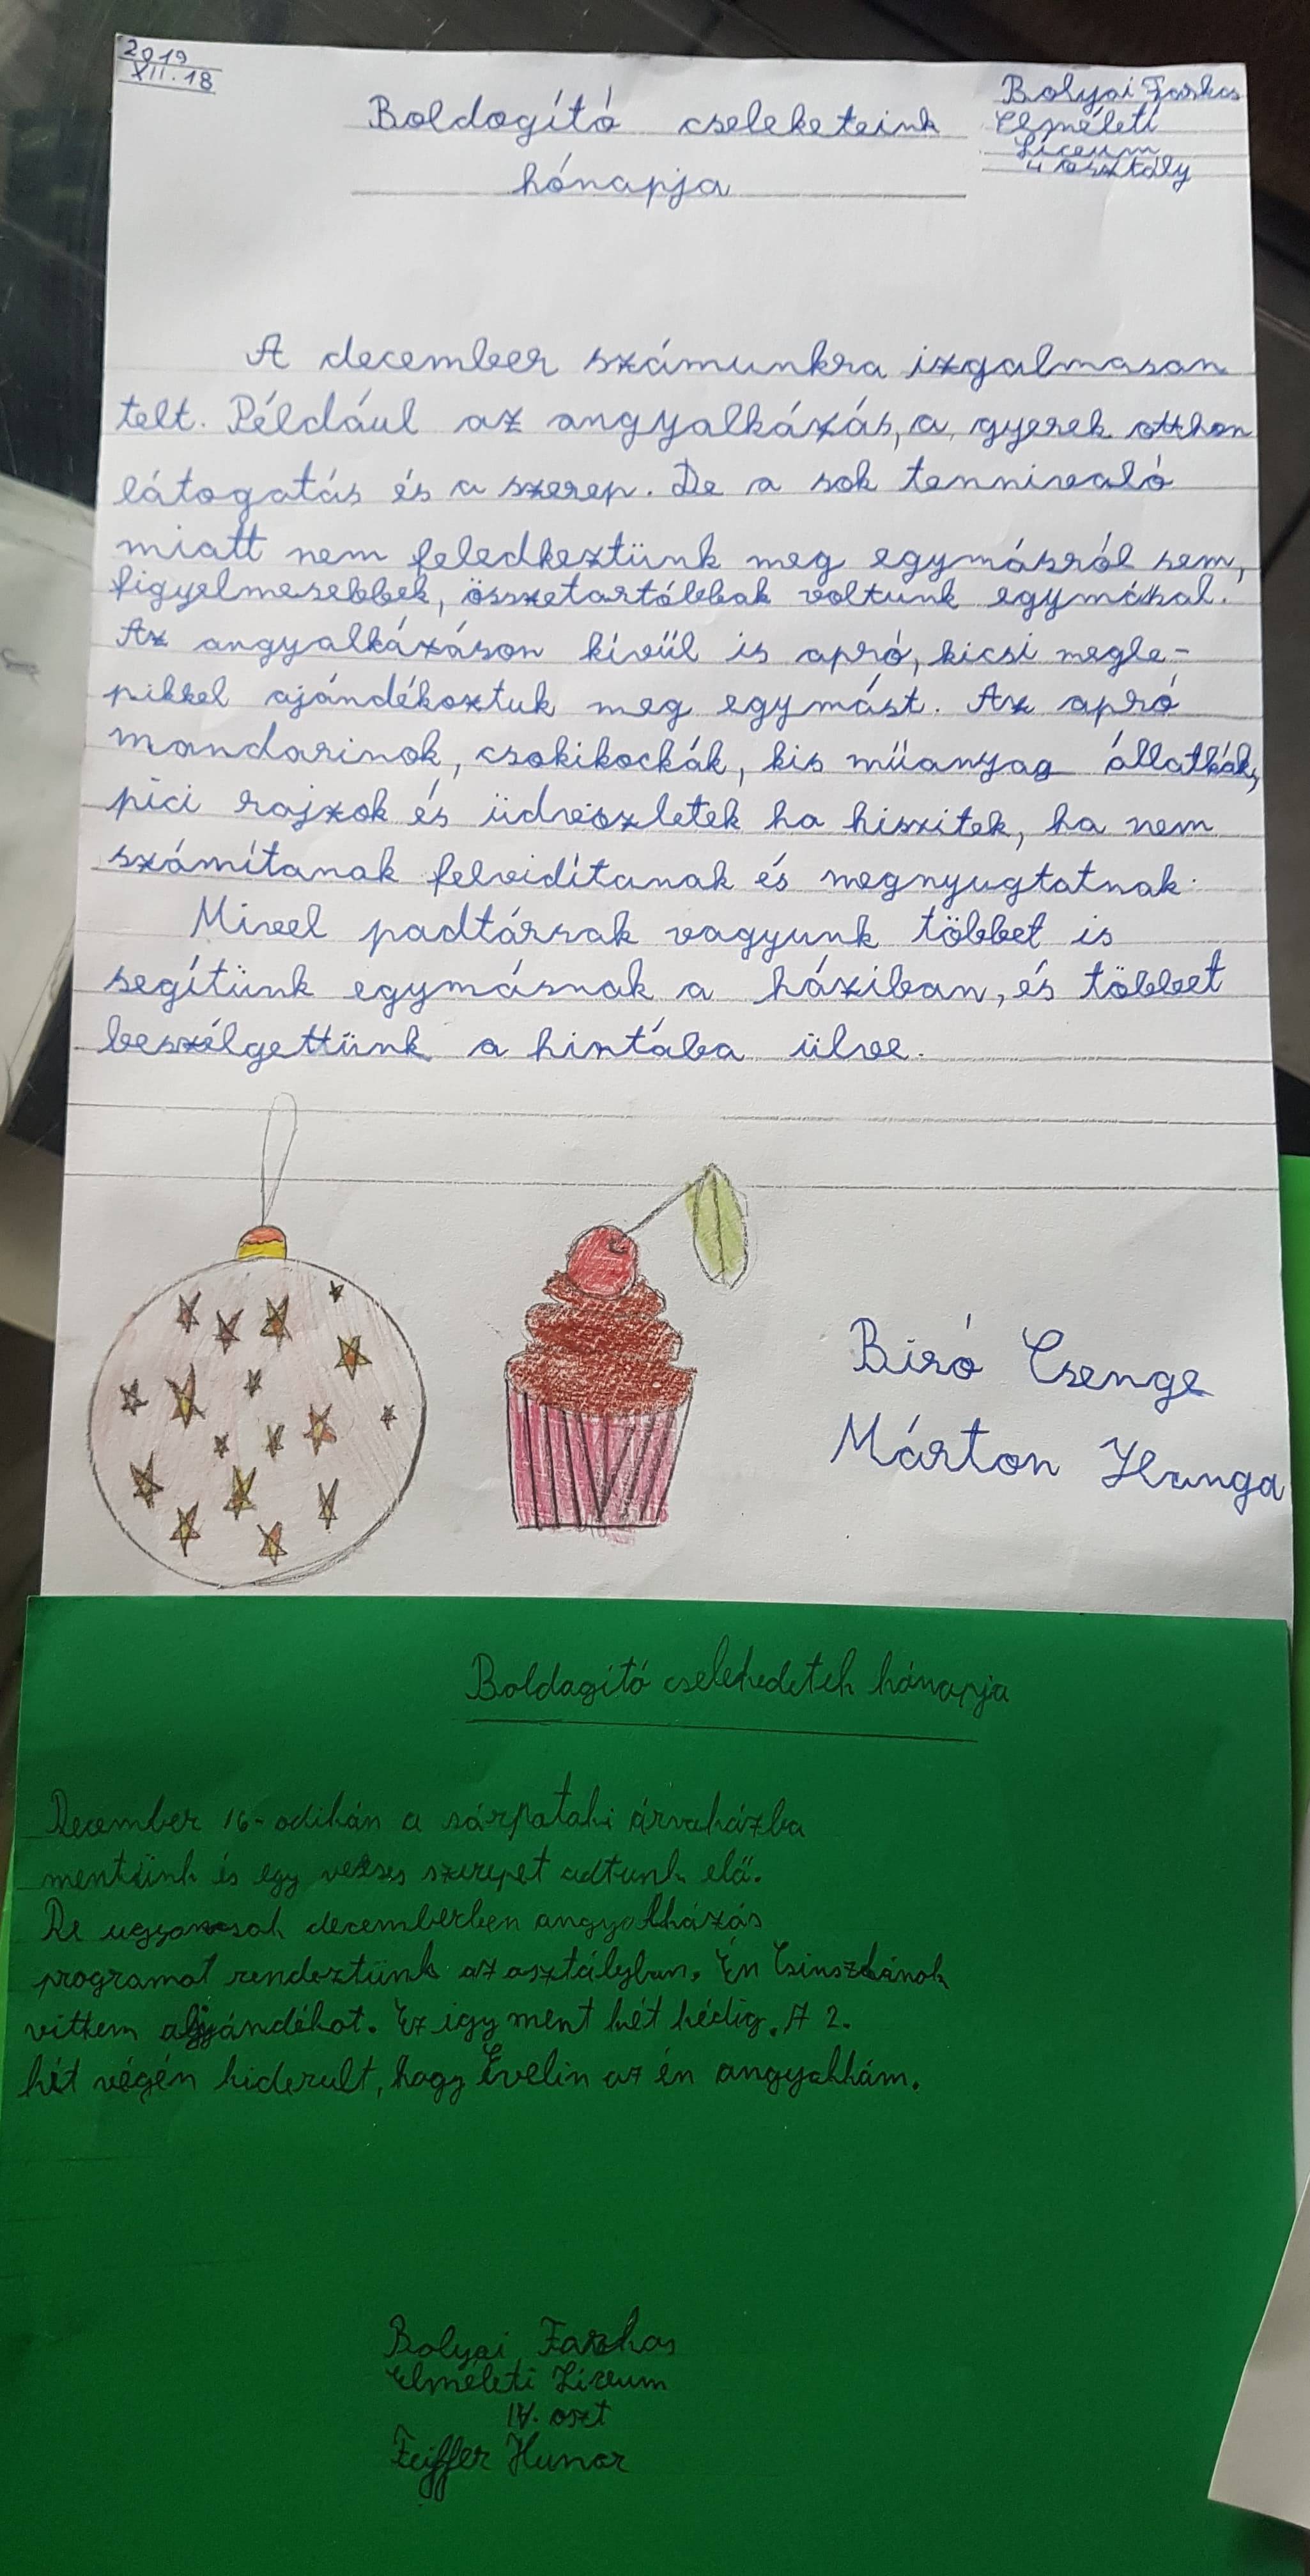 2019
XII. 18
Bolyai Farkas
Elméleti
Líceum
4 osztály
Boldogító cseleketeink
hónapja
A december számunkra izgalmasan
telt. Például az angyalkázás, a gyerek otthon
látogatás és a szerep. De a sok tennivaló
miatt nem feledkeztünk meg egymásról sem,
figyelmesebbek, összetartóbbak voltunk egymással.
Az angyalkázáson kívül is apró, kicsi megle-
pikkel ajándékoztuk meg egymást. Az apró
mandarinok, csokikockák, kis műanyag állatkák,
pici rajzok és üdvözletek ha hiszitek, ha nem
számítanak felvidítanak és megnyugtatnak.
Mivel padtársak vagyunk többet is
segítünk egymásnak a háziban, és többet
beszélgettünk a hintába ülve.
Biró Csenge
Márton Hunga
Boldagító cselekedetek hónapja
December 16-odikán a sárpataki árvaházba
mentünk és egy verses szerepet adtunk elő.
De ugyancsak decemberben angyalkázás
programot rendeztünk az osztályban. Én Csinszkának
vittem ajándékot. Ez igy ment két hédig. A 2.
hét végén kiderult, hogy Evelin az én angyalkám.
Bolyai Farkas
Elméleti Líceum
IV. oszt
Feiffer Hunor